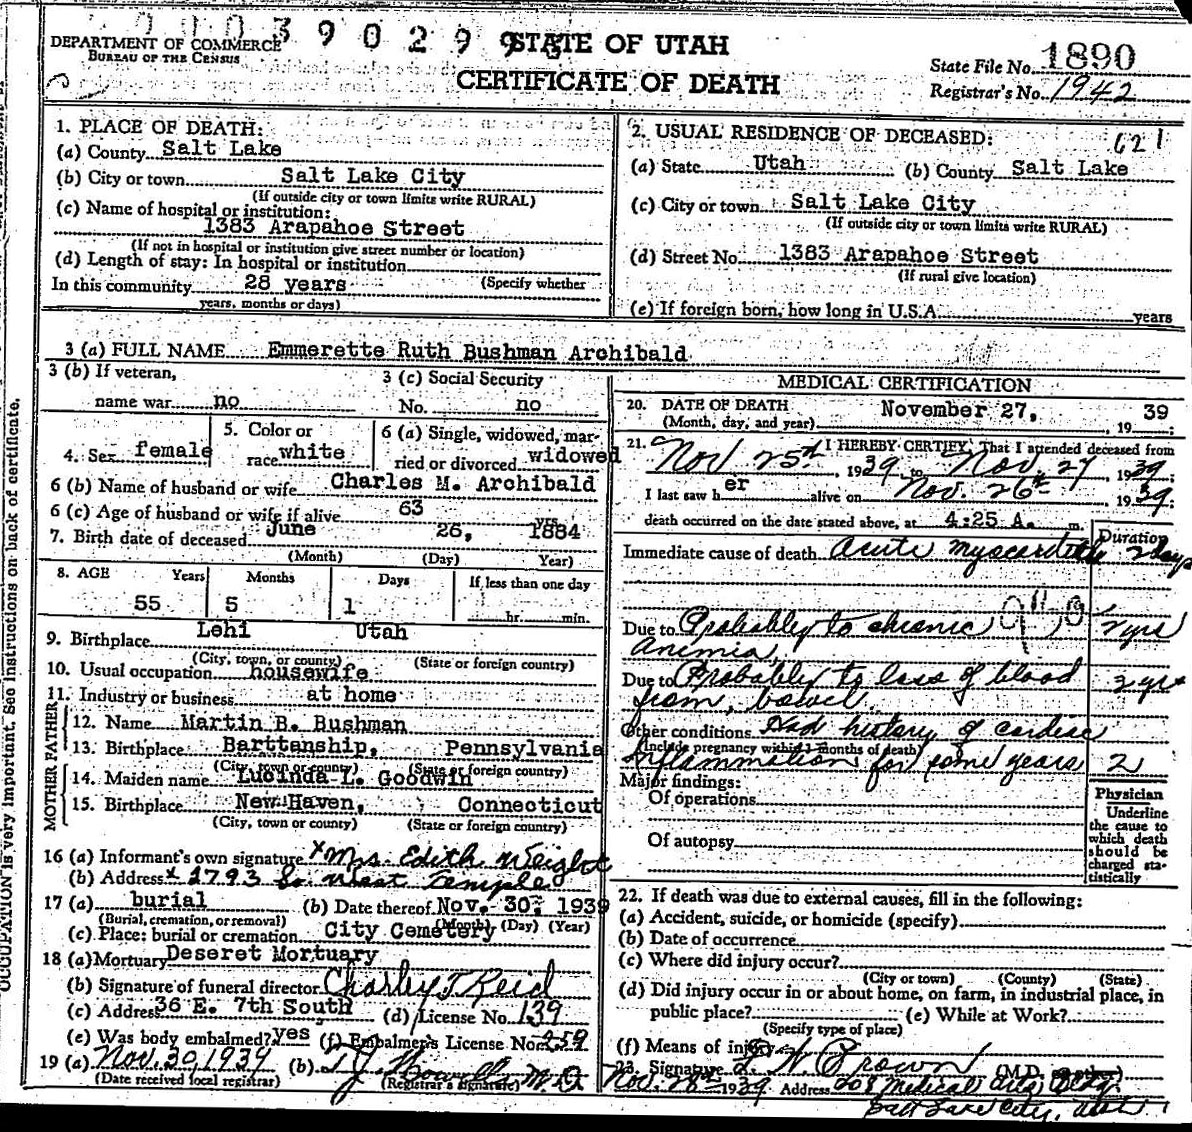 39029
DEPARTMENT OF COMMERCE
BUREAU OF THE CENSUS
STATE OF UTAH
CERTIFICATE OF DEATH
State File No. 1890
Registrar's No. 1942
1. PLACE OF DEATH:
(a) County Salt Lake
(b) City or town Salt Lake City
(If outside city or town limits write RURAL)
(c) Name of hospital or institution:
1383 Arapahoe Street
(If not in hospital or institution give street number or location)
(d) Length of stay: In hospital or institution
(Specify whether
In this community 28 years
years, months or days)
2. USUAL RESIDENCE OF DECEASED: 621
(a) State Utah (b) County Salt Lake
(c) City or town Salt Lake City
(If outside city or town limits write RURAL)
(d) Street No. 1383 Arapahoe Street
(If rural give location)
(e) If foreign born, how long in U.S.A. years
3 (a) FULL NAME Emmerette Ruth Bushman Archibald
3 (b) If veteran, name war no
3 (c) Social Security No. no
4. Sex female
5. Color or race white
6 (a) Single, widowed, married or divorced widowed
6 (b) Name of husband or wife Charles M. Archibald
6 (c) Age of husband or wife if alive 63 yrs.
7. Birth date of deceased June 26, 1884
(Month) (Day) Year)
8. AGE Years Months Days If less than one day
55 5 1 hr. min.
9. Birthplace Lehi Utah
(City, town, or county) (State or foreign country)
10. Usual occupation housewife
11. Industry or business at home
FATHER
12. Name Martin B. Bushman
13. Birthplace Barttanship, Pennsylvania
(City, town or county) (State or foreign country)
MOTHER
14. Maiden name Lucinda L. Goodwin
15. Birthplace New Haven, Connecticut
(City, town or county) (State or foreign country)
16 (a) Informant's own signature x Mrs. Edith Weight
(b) Address x 2793 So. West Temple
17 (a) burial (b) Date thereof Nov. 30, 1939
(Burial, cremation, or removal) (Month) (Day) (Year)
(c) Place: burial or cremation City Cemetery
18 (a) Mortuary Deseret Mortuary
(b) Signature of funeral director Charley T Reid
(c) Address 36 E. 7th South (d) License No. 139
(e) Was body embalmed? yes (f) Embalmer's License No. 259
19 (a) Nov. 30, 1939 (b) M.D.
(Date received local registrar) (Registrar's signature)
MEDICAL CERTIFICATION
20. DATE OF DEATH November 27, 1939;
(Month, day, and year)
21. I HEREBY CERTIFY, That I attended deceased from
Nov 25th, 1939, to Nov. 27, 1939;
I last saw her alive on Nov. 26th 1939;
death occurred on the date stated above, at 4:25 A. m.
Duration
Immediate cause of death Acute myocarditis 2 days
Due to Probably to chronic 2 yrs
Anemia
Due to Probably to loss of blood 2 yrs
from bowel
Other conditions Had history of cardiac
(Include pregnancy within 3 months of death)
inflammation for some years 2
Major findings:
Of operations
Of autopsy
Physician
Underline the cause to which death should be charged statistically
22. If death was due to external causes, fill in the following:
(a) Accident, suicide, or homicide (specify)
(b) Date of occurrence
(c) Where did injury occur?
(City or town) (County) (State)
(d) Did injury occur in or about home, on farm, in industrial place, in
public place? (e) While at Work?
(Specify type of place)
(f) Means of injury
23. Signature Brown (M.D.
Nov. 28th 1939 Address 208 Medical Arts Bldg.
Salt Lake City, Utah
OCCUPATION is very important. See instructions on back of certificate.